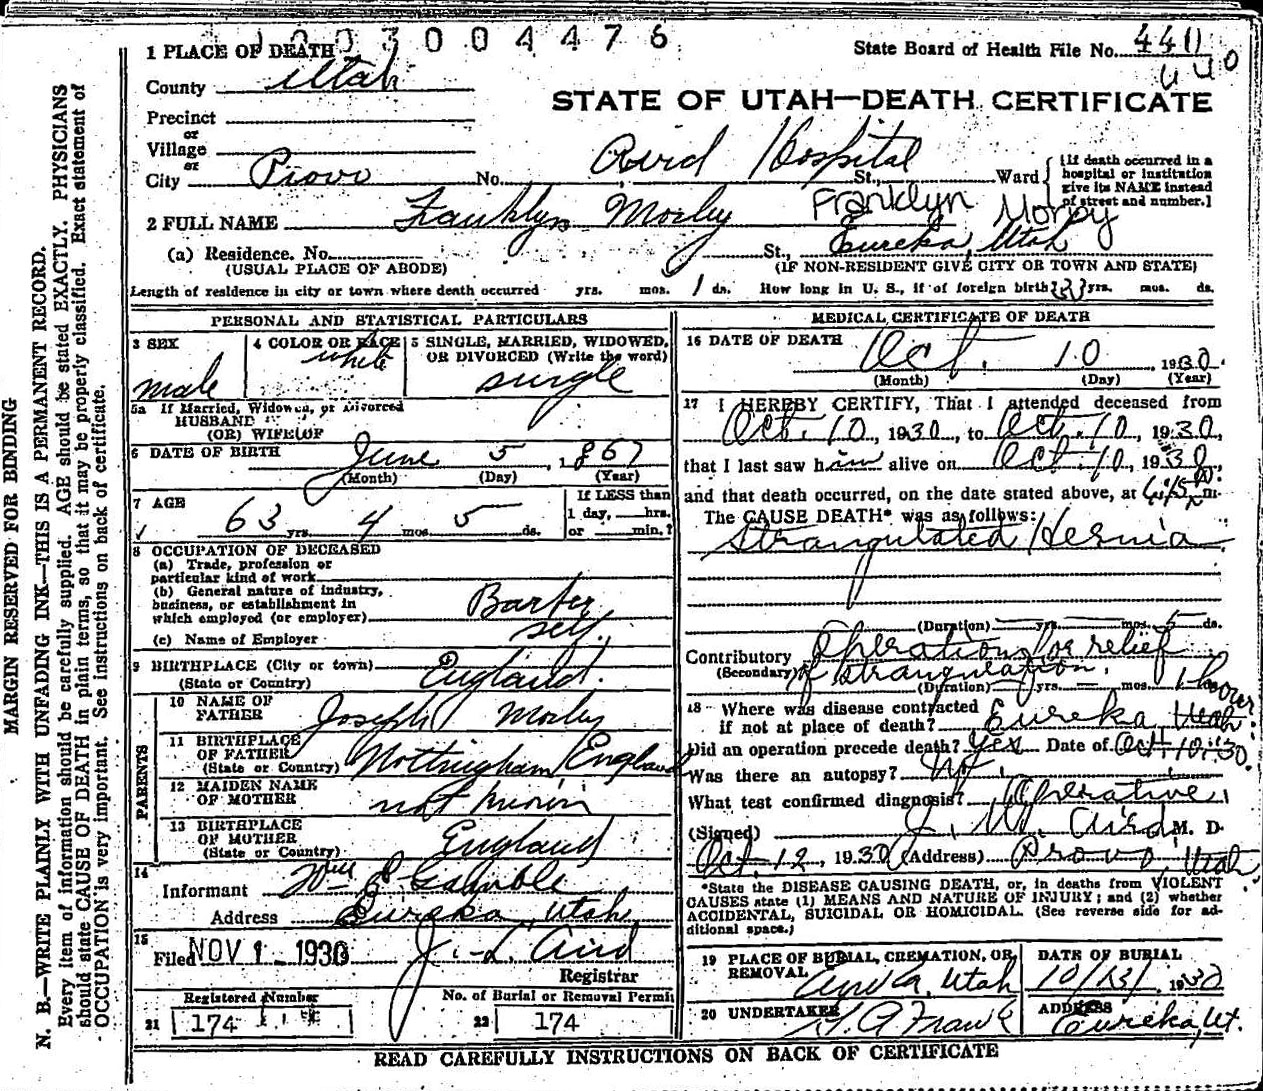 1003004476
1 PLACE OF DEATH
State Board of Health File No. 440
County Utah
STATE OF UTAH—DEATH CERTIFICATE
Precinct
or
Village
or
City Provo No. Aird Hospital St., Ward
[If death occurred in a
hospital or institution
give its NAME instead
of street and number.]
2 FULL NAME Franklyn Morley Franklyn
(a) Residence. No. St., Eureka, Utah
(USUAL PLACE OF ABODE) (IF NON-RESIDENT GIVE CITY OR TOWN AND STATE)
Length of residence in city or town where death occurred yrs. mos. 1 ds. How long in U. S., if of foreign birth? yrs. mos. ds.
PERSONAL AND STATISTICAL PARTICULARS
3 SEX
male
4 COLOR OR RACE
white
5 SINGLE, MARRIED, WIDOWED,
OR DIVORCED (Write the word)
single
5a If Married, Widowed, or Divorced
HUSBAND
(OR) WIFE OF
6 DATE OF BIRTH June 5, 1867
(Month) (Day) (Year)
7 AGE
63 yrs. 4 mos. 5 ds.
If LESS than
1 day, hrs.
or min.?
8 OCCUPATION OF DECEASED
(a) Trade, profession or
particular kind of work
(b) General nature of industry,
business, or establishment in
which employed (or employer) Barber
(c) Name of Employer self
9 BIRTHPLACE (City or town)
(State or Country) England.
PARENTS
10 NAME OF
FATHER Joseph Morley
11 BIRTHPLACE
OF FATHER
(State or Country) Nottingham England
12 MAIDEN NAME
OF MOTHER not known
13 BIRTHPLACE
OF MOTHER
(State or Country) England
14
Informant Wm
Address Eureka, Utah
15
Filed NOV 1 - 1930 J. L. Aird
Registrar
Registered Number
21 174
No. of Burial or Removal Permit
22 174
MEDICAL CERTIFICATE OF DEATH
16 DATE OF DEATH
Oct. 10 1930
(Month) (Day) (Year)
17 I HEREBY CERTIFY, That I attended deceased from
Oct. 10, 1930, to Oct. 10, 1930,
that I last saw him alive on Oct. 10, 1930,
and that death occurred, on the date stated above, at m.
The CAUSE DEATH* was as follows:
Strangulated Hernia
(Duration) yrs. mos. 5 ds.
Contributory Operation for relief
(Secondary) of strangulation.
(Duration) yrs. mos. 1 hour
18 Where was disease contracted
if not at place of death? Eureka Utah
Did an operation precede death? Yes Date of Oct 10, 30.
Was there an autopsy? No
What test confirmed diagnosis? Operative
(Signed) J. W. Aird M. D.
Oct. 12, 1930 (Address) Provo, Utah
*State the DISEASE CAUSING DEATH, or, in deaths from VIOLENT
CAUSES state (1) MEANS AND NATURE OF INJURY; and (2) whether
ACCIDENTAL, SUICIDAL OR HOMICIDAL. (See reverse side for ad-
ditional space.)
19 PLACE OF BURIAL, CREMATION, OR
REMOVAL Utah
DATE OF BURIAL
10/13/ 1930
20 UNDERTAKER
ADDRESS
Eureka, Ut.
READ CAREFULLY INSTRUCTIONS ON BACK OF CERTIFICATE
MARGIN RESERVED FOR BINDING
N. B.—WRITE PLAINLY WITH UNFADING INK—THIS IS A PERMANENT RECORD.
Every item of information should be carefully supplied. AGE should be stated EXACTLY. PHYSICIANS
should state CAUSE OF DEATH in plain terms, so that it may be properly classified. Exact statement of
OCCUPATION is very important. See instructions on back of certificate.